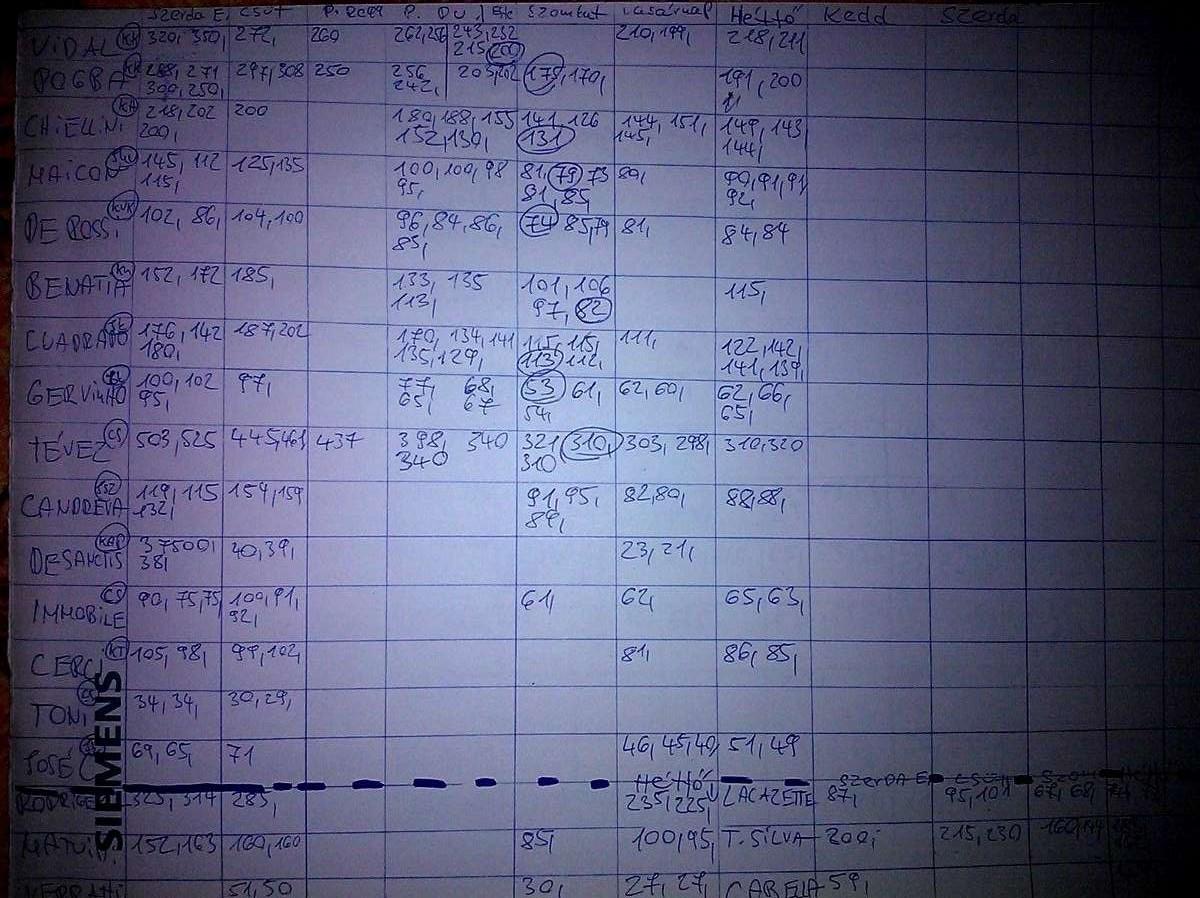 Szerda E. Csüt P. Regg P. Du. Este Szombat Vasárnap Hétfő Kedd Szerda
VIDAL KK 320, 350, 272, 260 262,256 243,232 210,199, 218,211
215,200
POGBA KK 288, 271 297,308 250 256 205,202 178,170, 191,200
300,250, 242,
CHIELLINI 218,202 200 180,188,155 141,126 144,151, 149,143
200, 152,130, 131 145, 144,
MAICON 145, 112 125,135 100,100,98 81,79 73 80, 90,91,91,
115, 95, 81,85, 92,
DE ROSSI KVK 102, 86, 104,100 96,84,86, 74 85,79 81, 84,84
85,
BENATIA 152, 172 185, 133, 135 101,106 115,
113, 97,82
CUADRADO 176, 142 187,202 170, 134,141 115,115, 111, 122,142,
180, 135,129, 113 112, 141,139,
GERVINHO 100, 102 97, 77, 68, 53 61, 62,60, 62,66,
95, 65, 67 54, 65,
TÉVEZ CS 503,525 445,461, 437 398, 340 321,310, 303,298, 310,320
340 310
CANDREVA 119,115 154,159 91,95, 82,80, 88,88,
132, 89,
DE SANCTIS KAP 37500, 40,39, 23,21,
38,
IMMOBILE CS 90, 75,75, 100,91, 61, 62, 65,63,
92,
CERCI 105, 98, 99,102, 81, 86,85,
TONI CS 34, 34, 30,29,
JOSÉ C 69,65, 71 46,45,40, 51,49
SIEMENS
Hétfő Szerda E.
RODRIGE 325, 314 285, 235,225, LACAZETTE 87, 95,101 67,68,
MATUIDI 152,163 160,160 85, 100,95, T. SILVA 200, 215,230
VERRATTI 51,50 30, 27,27, CABELLA 59,